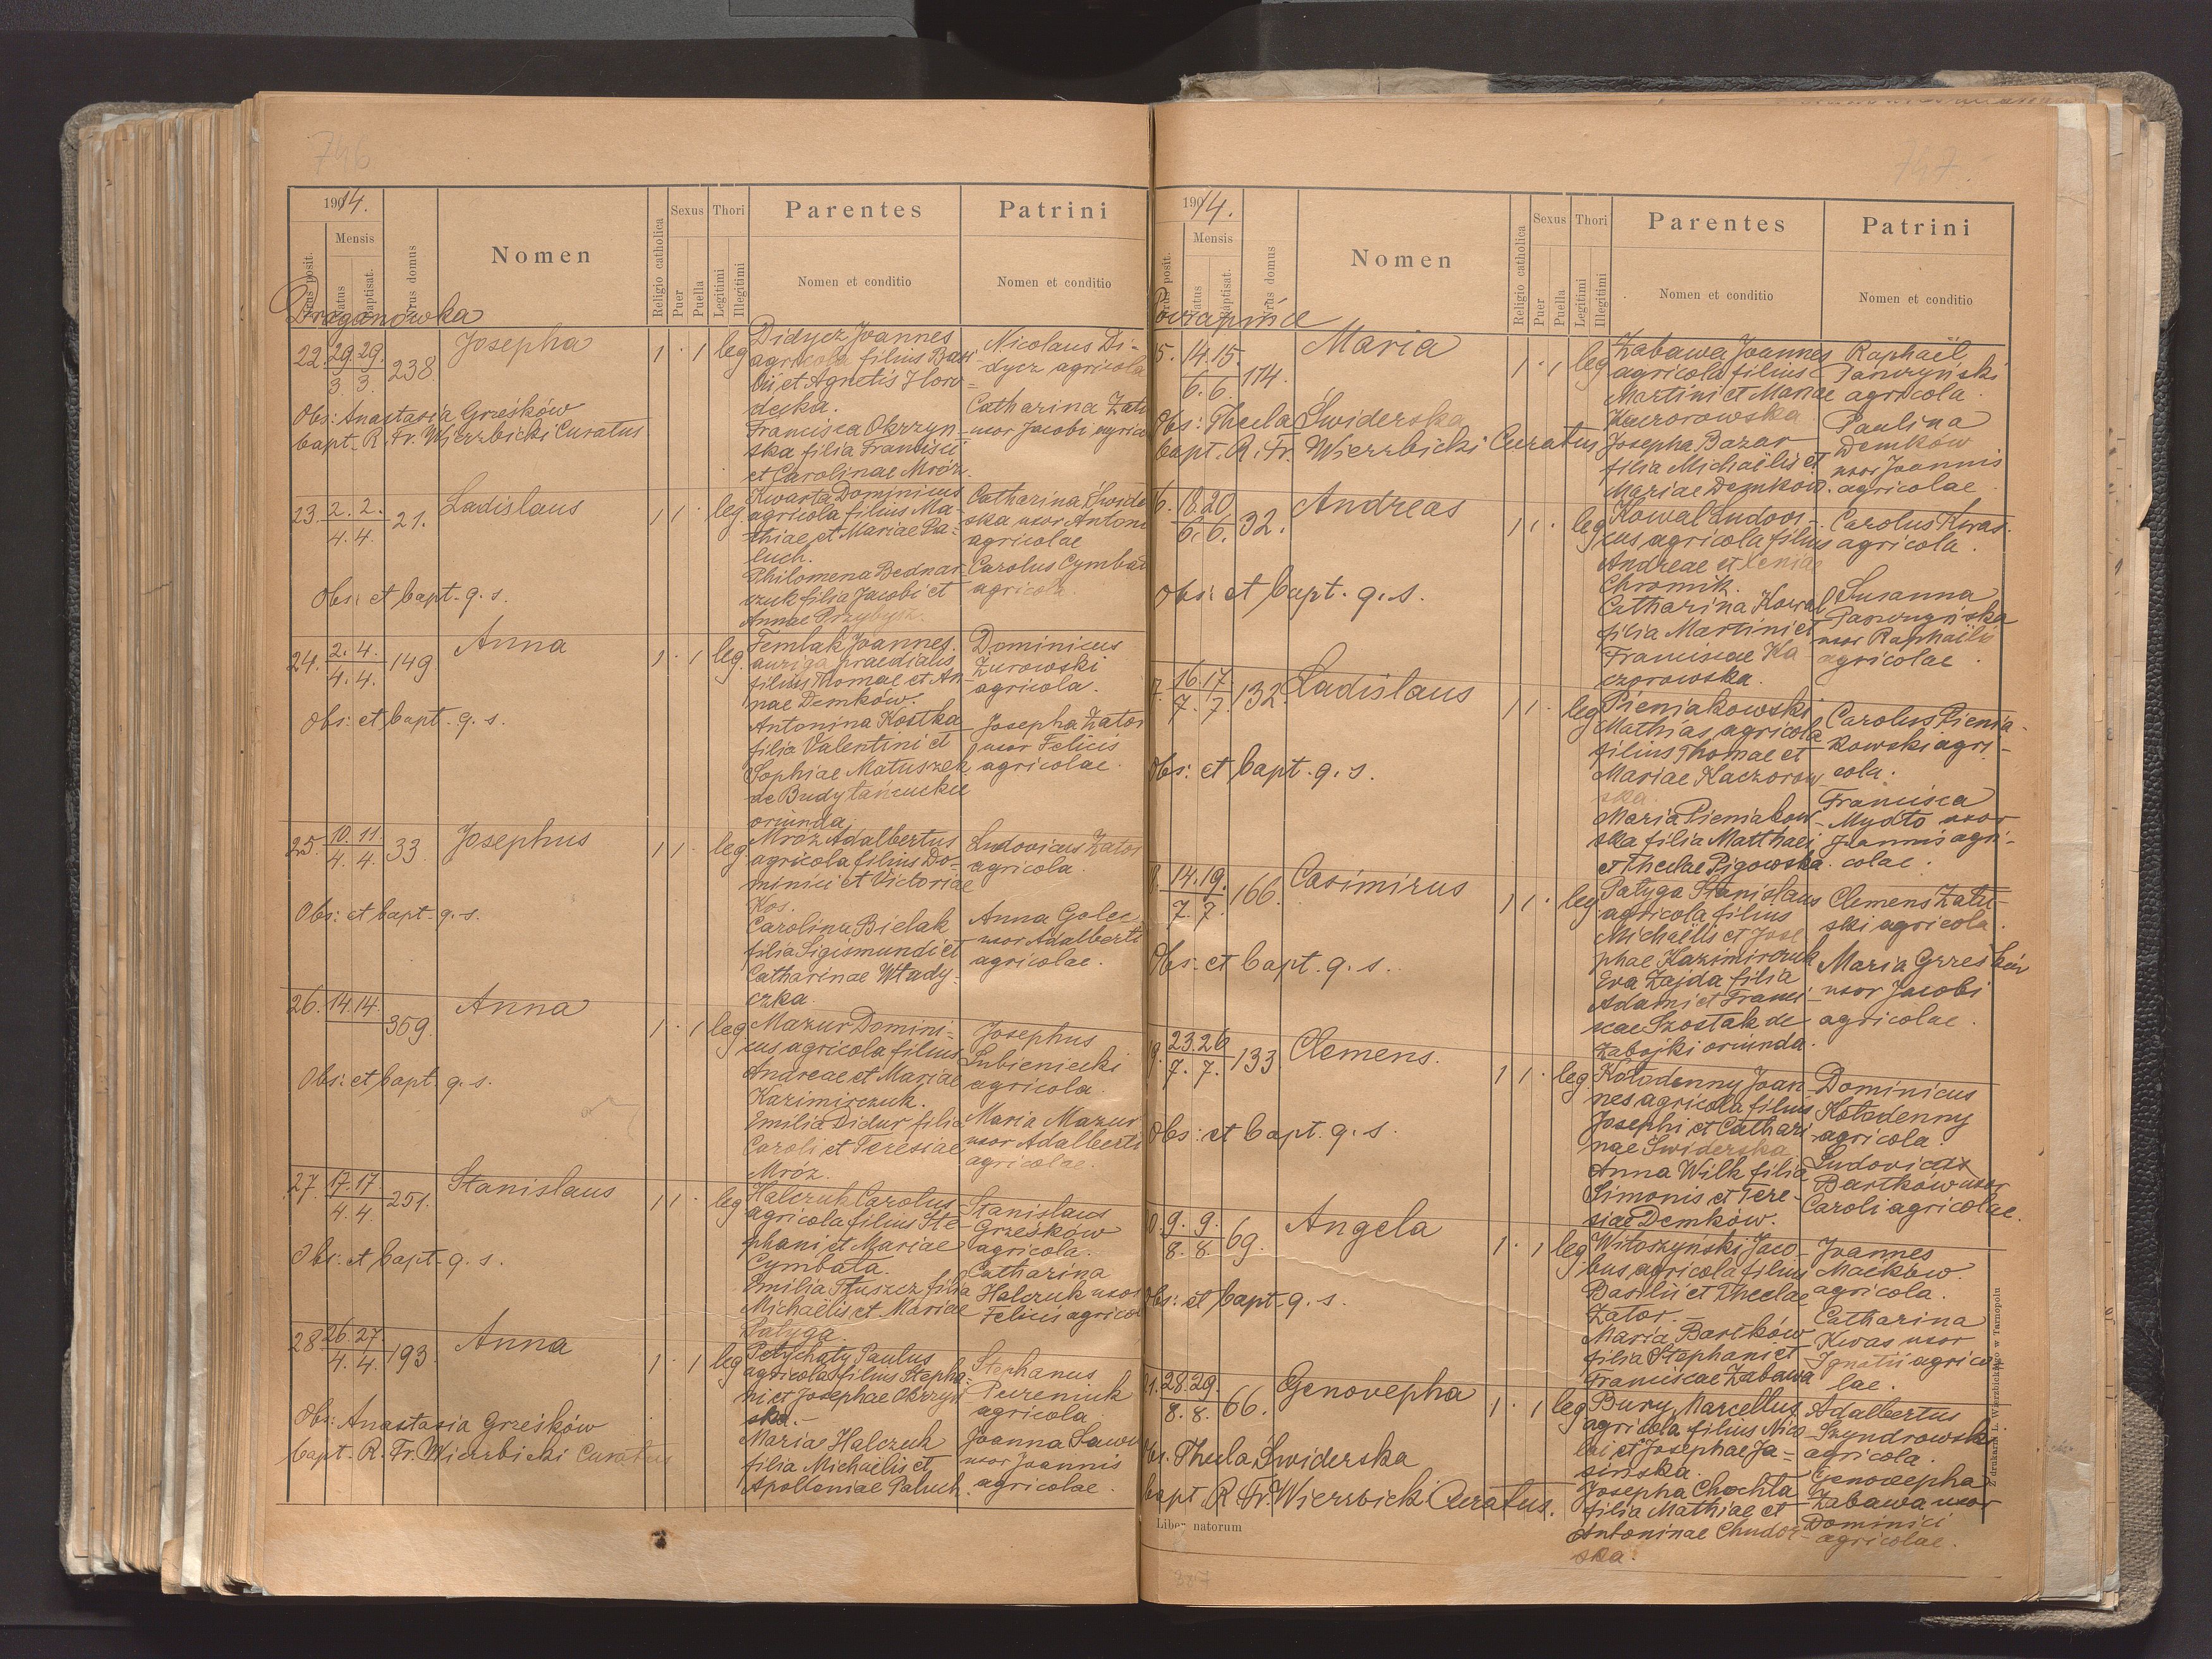 746
1914.
Numerus posit.
Mensis
natus
baptisat.
Numerus domus
Nomen
Religio catholica
Sexus
Puer
Puella
Thori
Legitimi
Illegitimi
Parentes
Nomen et conditio
Patrini
Nomen et conditio
Draganówka
22. 29. 29. 238. Josepha 1 . 1 leg
3. 3.
Didycz Joannes
agricola filius Basi-
lii et Agnetis Horo-
decka.
Francisca Okrzyn-
ska filia Francisci
et Carolinae Mróz.
Nicolaus Di-
dycz agricola
Catharina Zator
uxor Jacobi agrico
Obs: Anastasia Grześków
bapt. R. Fr. Wierzbicki Curatus
23. 2. 2. 21. Ladislaus 1 1 . leg
4. 4.
Kwarta Dominicus
agricola filius Ma-
thiae et Mariae Pa-
luch.
Philomena Bednar-
czuk filia Jacobi et
Annae Przybysz.
Catharina Świder
ska uxor Antoni
agricolae
Carolus Cymbał
agricola.
Obs: et bapt. q. s.
24. 2. 4. 149. Anna 1 . 1 leg.
4. 4.
Femlak Joannes.
auriga praedialis
filius Thomae et An-
nae Demków.
Antonina Kostka
filia Valentini et
Sophiae Matuszek
de Budy łańcuckie
oriunda.
Dominicus
Żurowski
agricola.
Josepha Zator
uxor Felicis
agricolae.
Obs: et bapt. q. s.
25. 10. 11. 33. Josephus 1 1 . leg
4. 4.
Mróz Adalbertus
agricola filius Do-
minici et Victoriae
Kos.
Carolina Bielak
filia Sigismundi et
Catharinae Włady-
czka.
Ludovicus Zator
agricola.
Anna Golec
uxor Adalberti
agricolae.
Obs: et bapt. q. s.
26. 14. 14. 359. Anna 1 . 1 leg
Mazur Domini-
cus agricola filius
Andreae et Mariae
Kazimirczuk.
Emilia Didur filia
Caroli et Teresiae
Mróz.
Josephus
Lubieniecki
agricola.
Maria Mazur
uxor Adalberti
agricolae.
Obs: et bapt. q. s.
27. 17. 17. 251. Stanislaus 1 1 . leg
4. 4.
Halczuk Carolus
agricola filius Ste-
phani et Mariae
Cymbała.
Emilia Tłuszcz filia
Michaëlis et Mariae
Patyga.
Stanislaus
Grześków
agricola.
Catharina
Halczuk uxor
Felicis agricol
Obs: et bapt. q. s.
28. 26. 27. 193. Anna 1 . 1 leg
4. 4.
Petychaty Paulus
agricola filius Stepha-
ni et Josephae Okrzyn
ska.
Maria Halczuk
filia Michaelis et
Apolloniae Paluch.
Stephanus
Pureniuk
agricola
Joanna
uxor Joannis
agricolae.
Obs: Anastasia Grześków
bapt. R. Fr. Wierzbicki Curatus
747.
1914.
Numerus posit.
Mensis
natus
baptisat.
Numerus domus
Nomen
Religio catholica
Sexus
Puer
Puella
Thori
Legitimi
Illegitimi
Parentes
Nomen et conditio
Patrini
Nomen et conditio
Poczapińce
5. 14. 15. 114. Maria 1 . 1 leg
6. 6.
Zabawa Joannes
agricola filius
Martini et Mariae
Kaczorowska
Josepha Bazar
filia Michaëlis et
Mariae Demków.
Raphaël
Panczyński
agricola.
Paulina
Demków
uxor Joannis
agricolae
Obs: Thecla Świderska
bapt. R. Fr. Wierzbicki Curatus
6. 18. 20. 32. Andreas 1 1 . leg
6. 6.
Kowal Ludovi-
cus agricola filius
Andreae et Xeniae
Chromik.
Catharina Kowal
filia Martini et
Franciscae Ka
czorowska.
Carolus Kwas.
agricola.
Susanna
Panczyńska
uxor Raphaëlis
agricolae.
Obs: et bapt. q. s.
7. 16. 17. 132. Ladislaus 1 1 . leg
7. 7.
Pieniakowski
Mathias agricola
filius Thomae et
Mariae Kaczorow
ska.
Maria Pieniakow-
ska filia Matthaei
et Theclae Pigowska.
Carolus Pienia-
kowski agri-
cola.
Francisca
Mydło uxor
Joannis agri-
colae.
Obs: et bapt. q. s.
8. 14. 19. 166. Casimirus 1 1 . leg
7. 7.
Patyga Stanislaus
agricola filius
Michaëlis et Jose
phae Kazimirczuk
Eva Zajda filia
Adami et Franci-
scae Szostak de
Zabojki oriunda.
Clemens Zatu-
ski agricola.
Maria Grześków
uxor Jacobi
agricolae.
Obs: et bapt. q. s.
9. 23. 26. 133. Clemens. 1 1 . leg
7. 7.
Kołodenny Joan-
nes agricola filius
Josephi et Cathari-
nae Świderska
Anna Wilk filia
Simonis et Tere-
siae Demków.
Dominicus
Kołodenny
agricola.
Ludovica
Bartków uxor
Caroli agricolae.
Obs: et bapt. q. s.
10. 9. 9. 69. Angela 1 . 1 leg
8. 8.
Witoszyński Jaco-
bus agricola filius
Basilii et Theclae
Zator.
Maria Bartków
filia Stephani et
Franciscae Zabawa
Joannes
Maćków.
agricola.
Catharina
Kwas uxor
Ignatii agrico
lae.
Obs: et bapt. q. s.
11. 28. 29. 66. Genovepha 1 . 1 leg
8. 8.
Bury Marcellus
agricola filius Nico-
lai et Josephae Ja-
sińska.
Josepha Chochla
filia Mathiae et
Antoninae Chudoz-
ska.
Adalbertus
Szyndrowski
agricola.
Genovepha
Zabawa uxor
Dominici
agricolae.
Obs. Thecla Świderska
bapt. R. Fr. Wierzbicki Curatus.
Liber natorum
Z drukarni L. Wierzbickiego w Tarnopolu